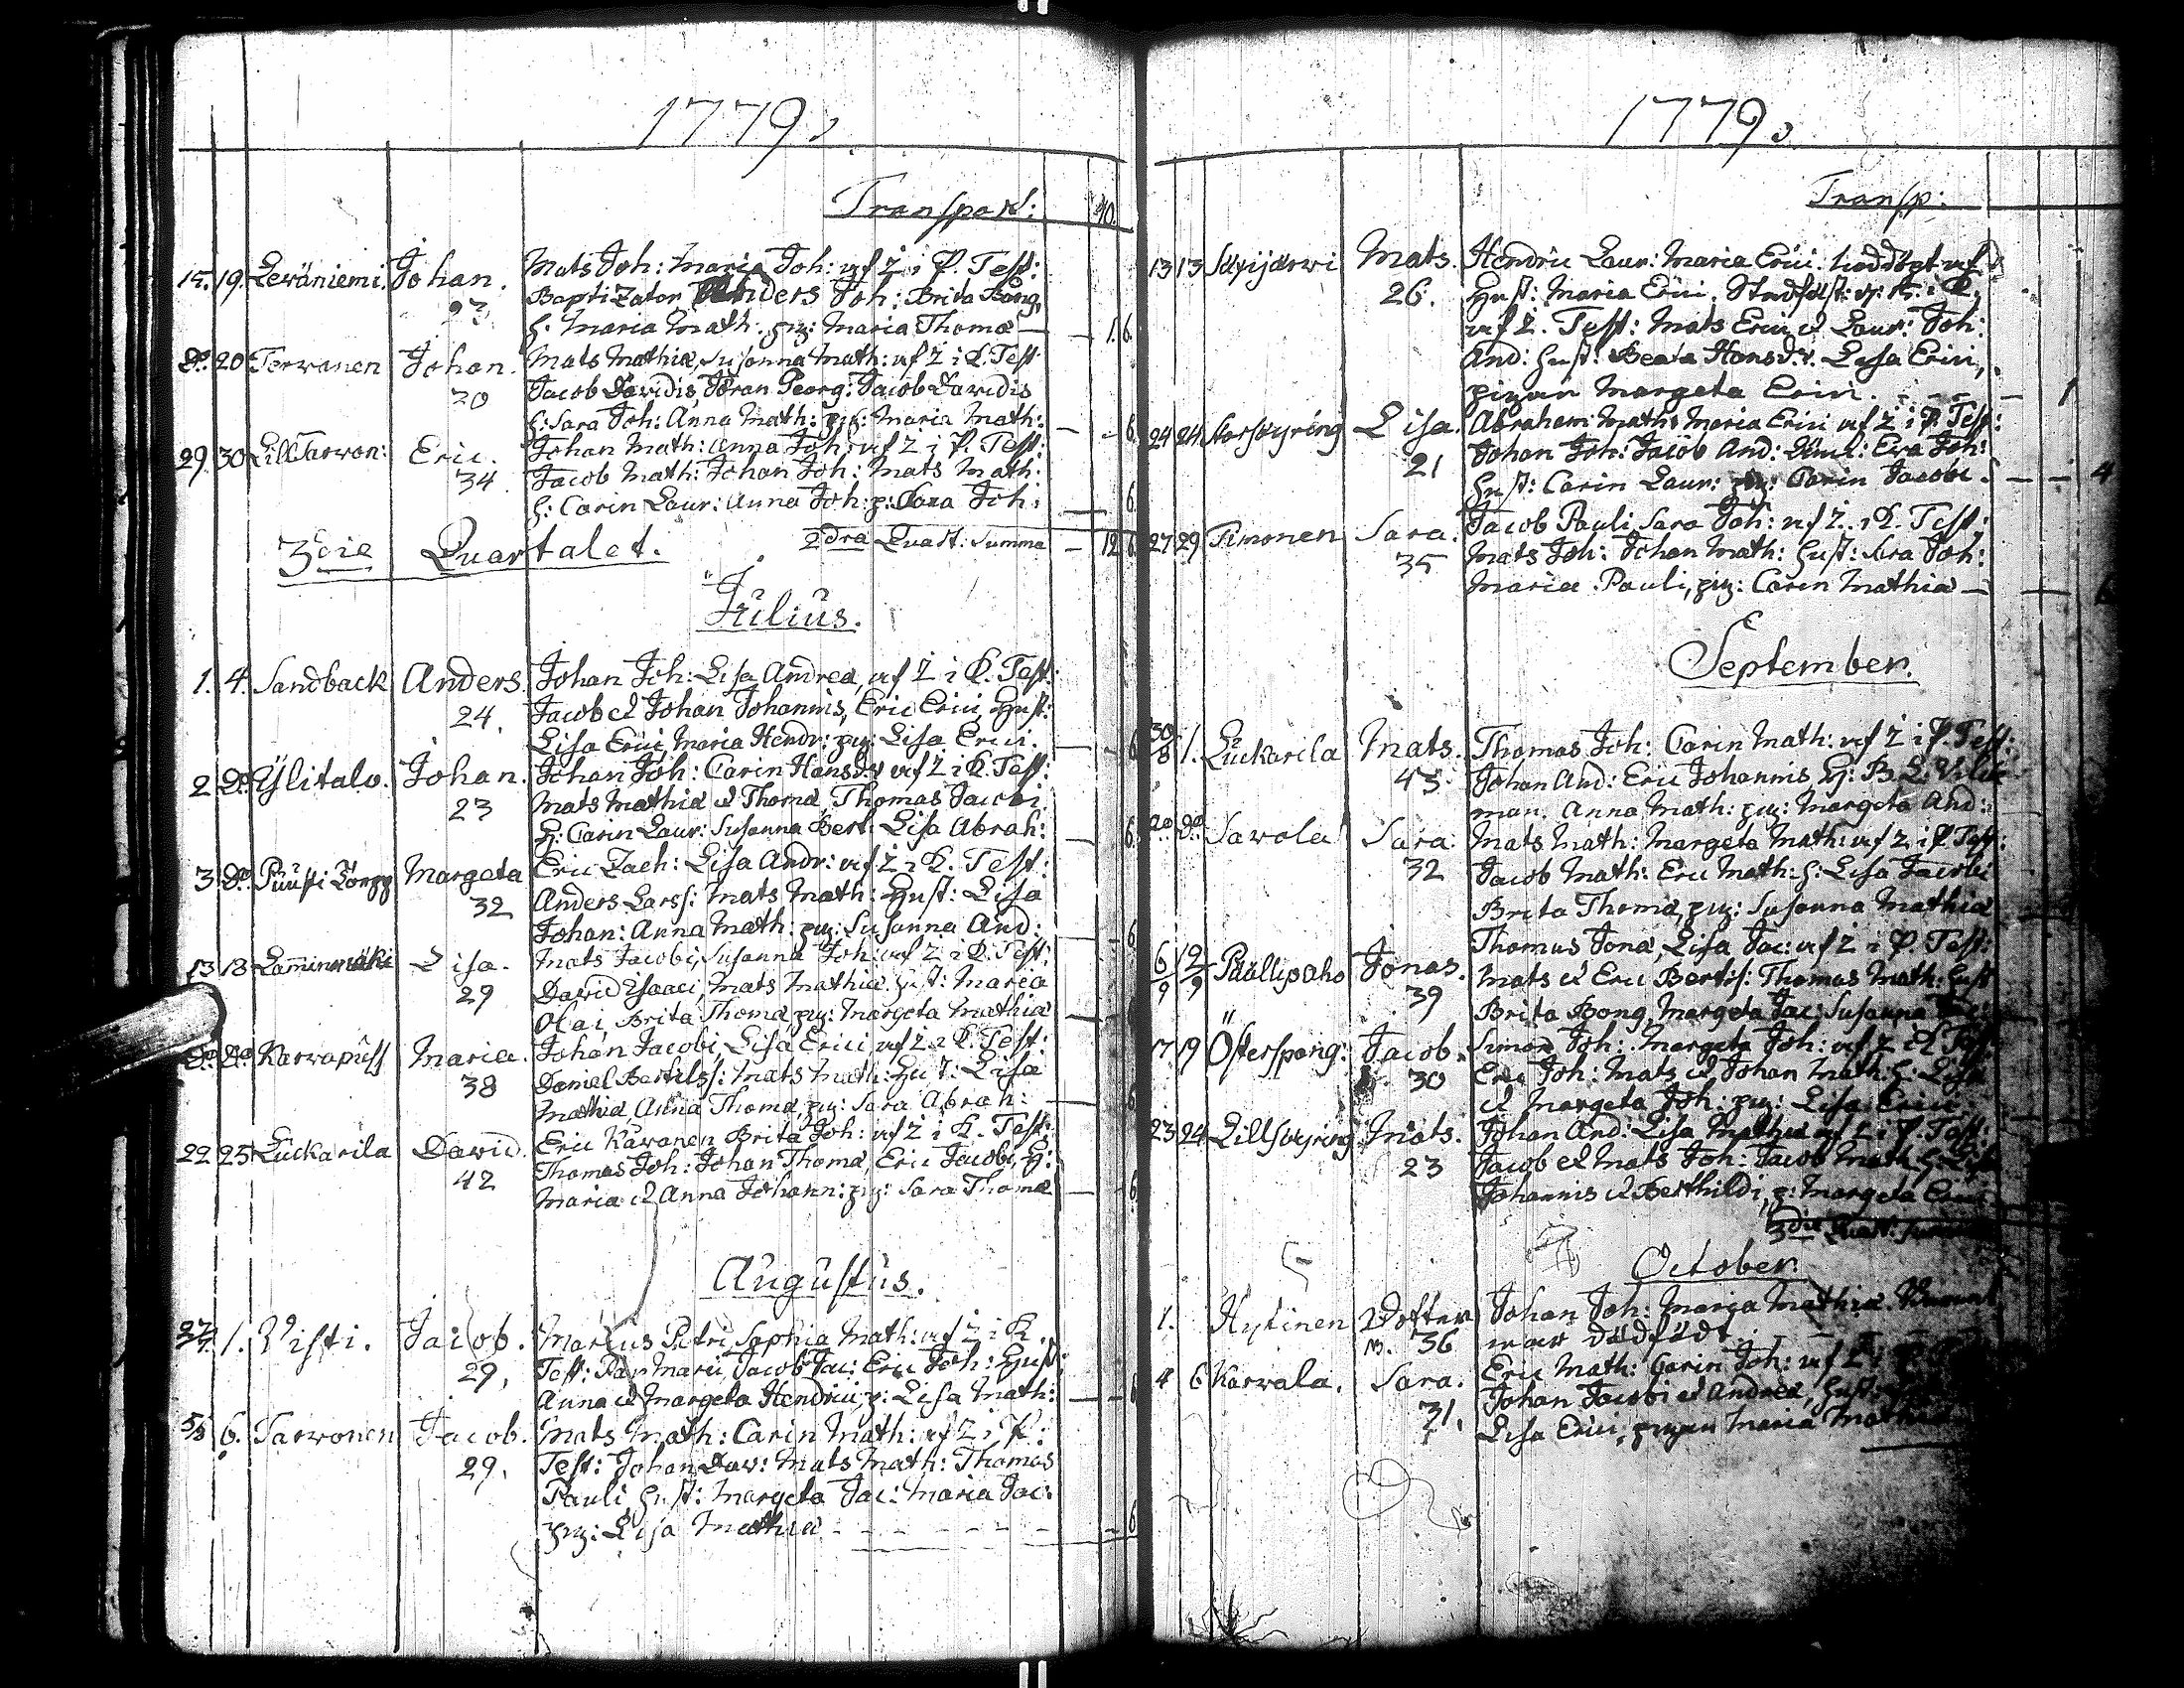 1779.
Transport: 40.
15. 19. Leväniemi. Johan. Mats Joh: Maria Joh: uxf 2 i K. Test:
23 Baptizator Anders Joh: Brita Bong,
h. Maria Math. pig: Maria Thomæ — 1. 6.
Do. 20 Terwanen Johan. Mats Mathiæ, Susanna Math: uxf 2 i K. Test:
20 Jacob Davidis, Jöran Georg: Jacob Davidis
h: Sara Joh: Anna Math: pig: Maria Math: — 6.
29. 30 Lill Tarwon: Eric. Johan Math: Anna Joh: uxf 2 i K. Test:
34. Jacob Math: Johan Joh: Mats Math:
h: Carin Laur: Anna Joh: p: Sara Joh: 6.
3die Quartalet. 2dra Quart: Summa — 12 6.
Julius.
1. 4. Sandback Anders. Johan Joh: Lisa Andreæ, uxf 2 i K. Test:
24. Jacob et Johan Johannis, Eric Erici Hust:
Lisa Erici, Maria Hendr: pig: Lisa Erici. — 6
2 Do. Ylitalo. Johan. Johan Joh: Carin Hansdr uxf 2 i K. Test:
23 Mats Mathiæ et Thomæ, Thomas Jacobi
h: Carin Laur: Susanna Bert: Lisa Abrah: — 6.
3 Do. Puusti Torpp Margeta Eric Zach: Lisa Andr: uxf 2 i K. Test:
32 Anders Larss: Mats Math: Hust: Lisa
Johan: Anna Math: pig: Susanna And: — 6
13 13 Lamminmäki Lisa. Mats Jacobi, Susanna Joh: uxf 2 i K. Test:
29 David Isaaci, Mats Mathiæ Hust: Maria
Olai, Brita Thomæ, pig: Margeta Mathiæ —
Do. Do. Karwapuss Maria. Johan Jacobi, Lisa Erici, uxf 2 i K. Test:
38 Daniel Bertilss: Mats Math: Hust: Lisa
Mathiæ, Anna Thomæ, pig: Sara Abrah: — 6
22 25 Luckarila David. Eric Kawanen Brita Joh: uxf 2 i K. Test:
42 Thomas Joh: Johan Thomæ, Eric Jacobi, H:
Maria et Anna Johann: pig: Sara Thomæ — 6
Augustus.
27/7 1. Visti. Jacob. Marcus Petri, Sophia Math: uxf 2 i K.
29, Test: Marci, Jacob Jac: Eric Joh: Hust:
Anna et Margeta Hendrici, p: Lisa Math: — 6
5/8 6. Tarwonen Jacob. Mats Math: Carin Math: uxf 2 i K:
29, Test: Johan Dav: Mats Math: Thomas
Pauli, Hust: Margeta Jac: Maria Jac:
pig: Lisa Mathiæ — 6
1779.
Transp:
13 13 Säyijärwi Mats. Hendric Laur: Maria Erici.
26. Hust: Maria Erici.
uxf 2. Test: Mats Erici et Laur: Joh:
And: Hust: Beata Hansdr. Lisa Erici,
pigan Margeta Erici. — 1
24 24 Norsyring Lisa. Abraham Math: Maria Erici uxf 2 i K. Test:
21 Johan Joh: Jacob And: Eva Joh:
Hust: Carin Laur: pig: Carin Jacobi. — 4
27 29 Timonen Sara. Jacob Pauli Sara Joh: uxf 2. i K. Test:
35 Mats Joh: Johan Math: Hust: Sara Joh:
Maria Pauli, pig: Carin Mathiæ — 6
September.
30/8 1. Luckarila Mats. Thomas Joh: Carin Math: uxf 2 i K. Test:
43 Johan And: Eric Johannis H: B. L.
man. Anna Math: pig: Margeta And:
Do Do Savola Sara. Mats Math: Margeta Math: uxf 2 i K Test:
32 Jacob Math: Eric Math: h: Lisa Jacobi
Brita Thomæ, pig: Susanna Mathiæ
6/9 12/9 Päällipaho Jonas. Thomas Jonæ, Lisa Jac: uxf 2 i K. Test:
39 Mats et Eric Bertils: Thomas Math: Hust
Brita Bong, Margeta Jac: Susanna
17 19 Österspong: Jacob. Simon Joh: Margeta Joh: uxf 2 i K
30 Eric Joh: Mats et Johan Math: h: Lisa
et Margeta Joh: pig: Lisa Erici
23 24 Lillsyring Mats. Johan And: Lisa Mathiæ uxf 2 i K. Test:
23 Jacob et Mats Joh: Jacob Math: h: Lisa
Johannis et Berthildi, p: Margeta
3die Quart: Summa
October.
1. Hytinen Dotter Johan Joh: Maria Mathiæ. Barnet
m. 36 war dödfödt.
4 6 Karvala. Sara. Eric Math: Carin Joh: uxf 2 i
31. Johan Jacobi et Andreæ, Hust:
Lisa Erici, pigan Maria Mathiæ